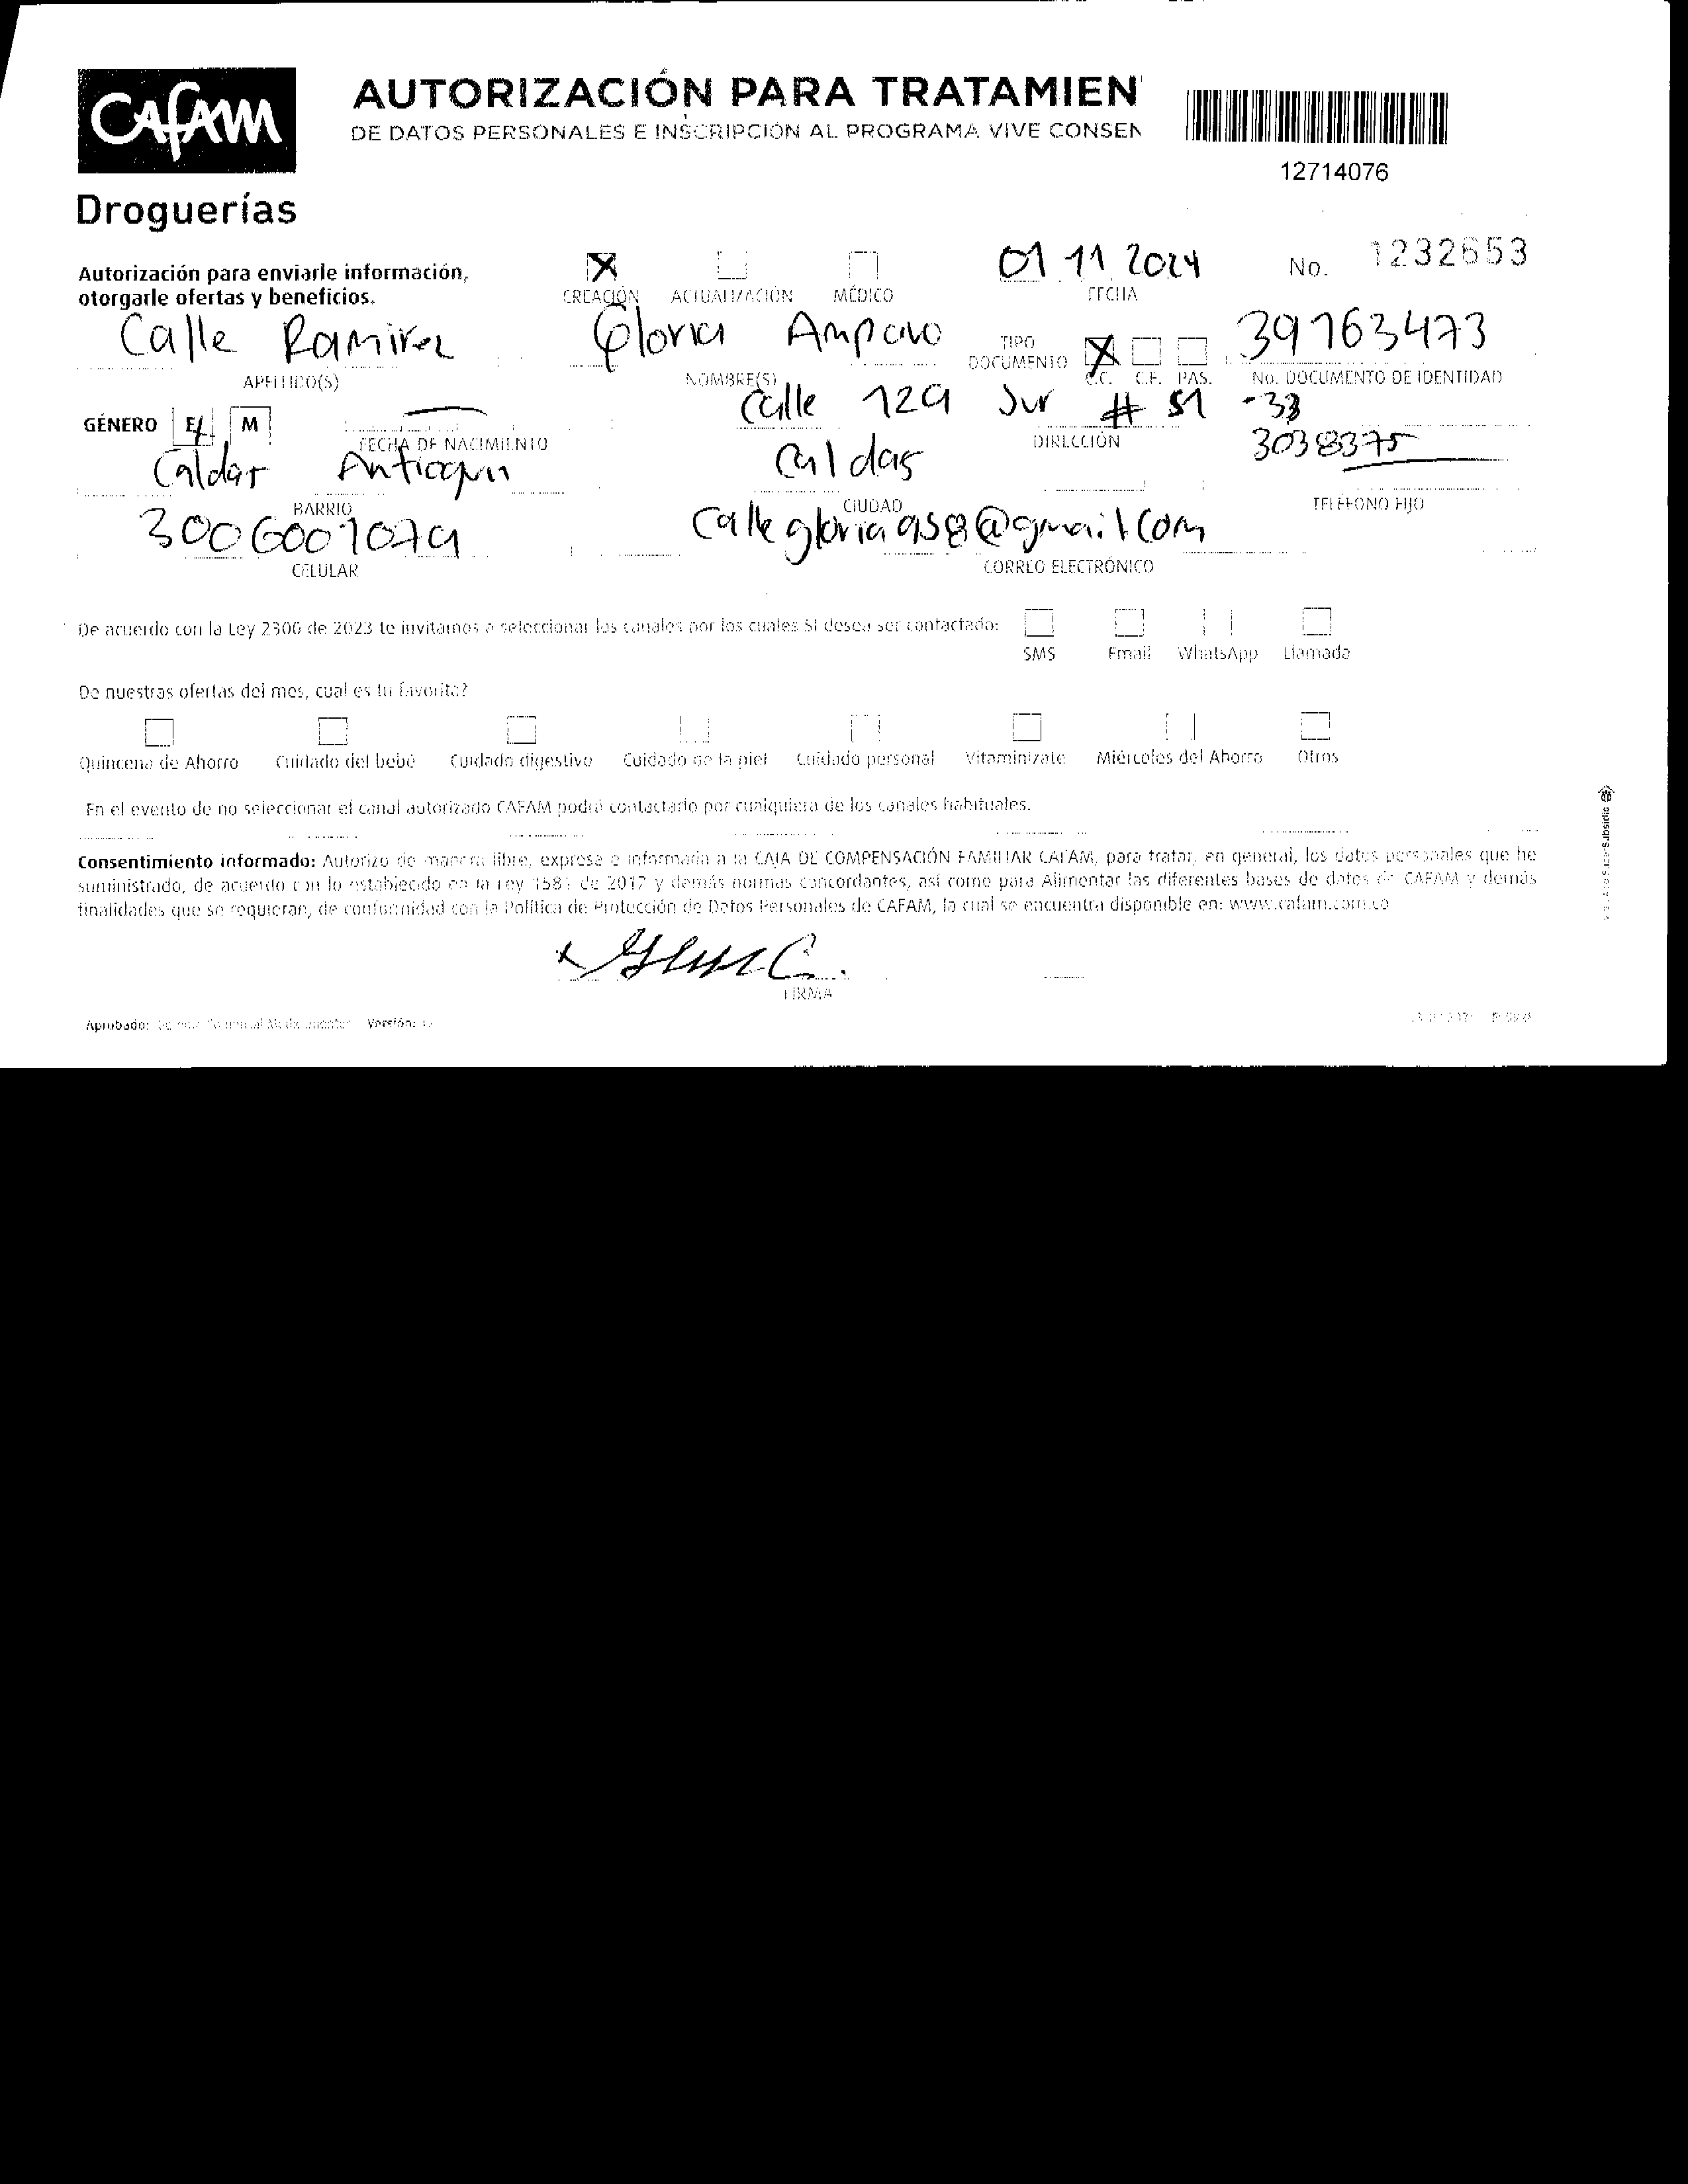 CAFAM
Droguerías
AUTORIZACIÓN PARA TRATAMIEN
DE DATOS PERSONALES E INSCRIPCIÓN AL PROGRAMA VIVE CONSEN
12714076
Autorización para enviarle información,
otorgarle ofertas y beneficios.
X
CREACIÓN ACTUALIZACIÓN MÉDICO
01 11 2024
FECHA
No. 1232653
Calle Ramirez
APELLIDO(S)
Gloria Amparo
NOMBRE(S)
TIPO
DOCUMENTO
X
C.C. C.E. PAS.
39163473
No. DOCUMENTO DE IDENTIDAD
GÉNERO F M
FECHA DE NACIMIENTO
Calle 129 Sur # 51 -33
DIRECCIÓN
Caldas Antioquia
BARRIO
Caldas
CIUDAD
3038375
TELÉFONO FIJO
3006001079
CELULAR
Calle gloria 958@gmail.com
CORREO ELECTRÓNICO
De acuerdo con la Ley 2300 de 2023 te invitamos a seleccionar los canales por los cuales SI desea ser contactado:
SMS Email WhatsApp Llamada
De nuestras ofertas del mes, cual es tu favorita?
Quincena de Ahorro Cuidado del bebé Cuidado digestivo Cuidado de la piel Cuidado personal Vitaminízate Miércoles del Ahorro Otros
En el evento de no seleccionar el canal autorizado CAFAM podrá contactarlo por cualquiera de los canales habituales.
Consentimiento informado: Autorizo de manera libre, expresa e informada a la CAJA DE COMPENSACIÓN FAMILIAR CAFAM, para tratar, en general, los datos personales que he
suministrado, de acuerdo con lo establecido en la ley 1581 de 2012 y demás normas concordantes, así como para Alimentar las diferentes bases de datos de CAFAM y demás
finalidades que se requieran, de conformidad con la Política de Protección de Datos Personales de CAFAM, la cual se encuentra disponible en: www.cafam.com.co
x
FIRMA
Aprobado: Versión: